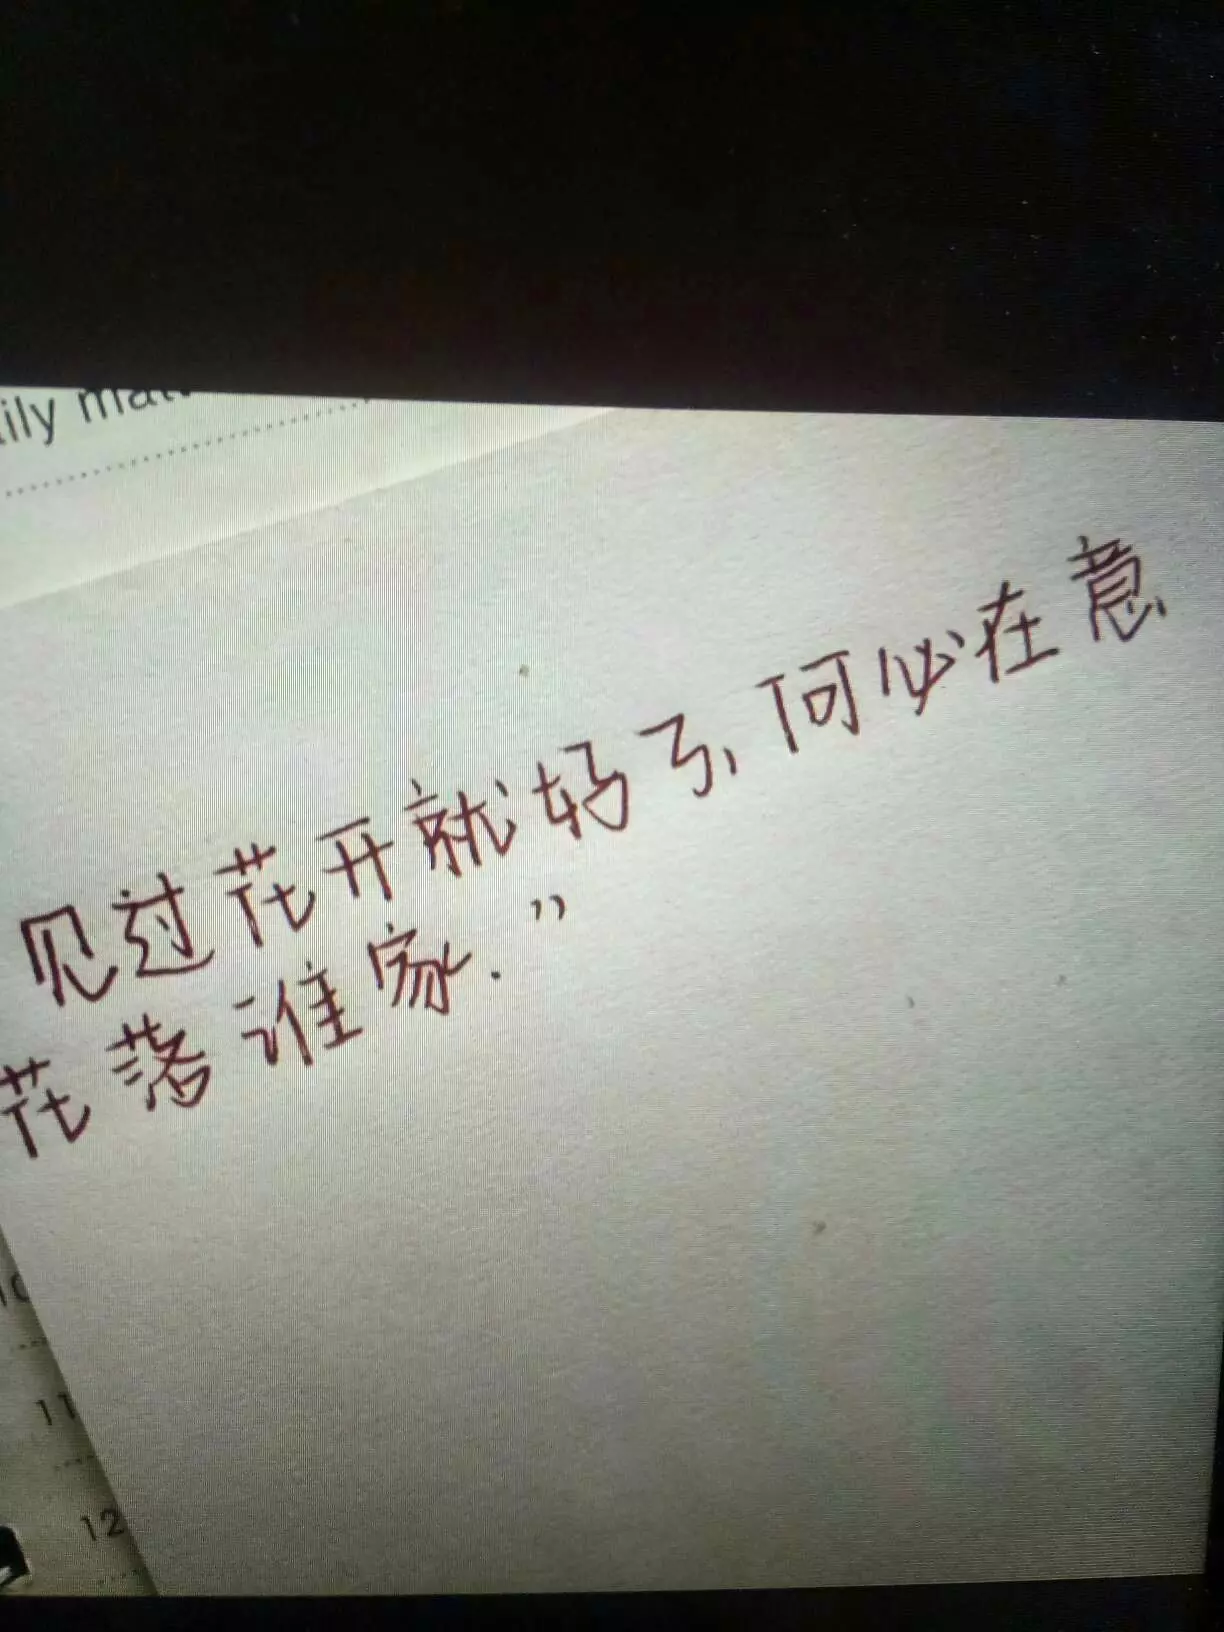 ily mat
见过花开就好了,何必在意
花落谁家.”
10
11
12